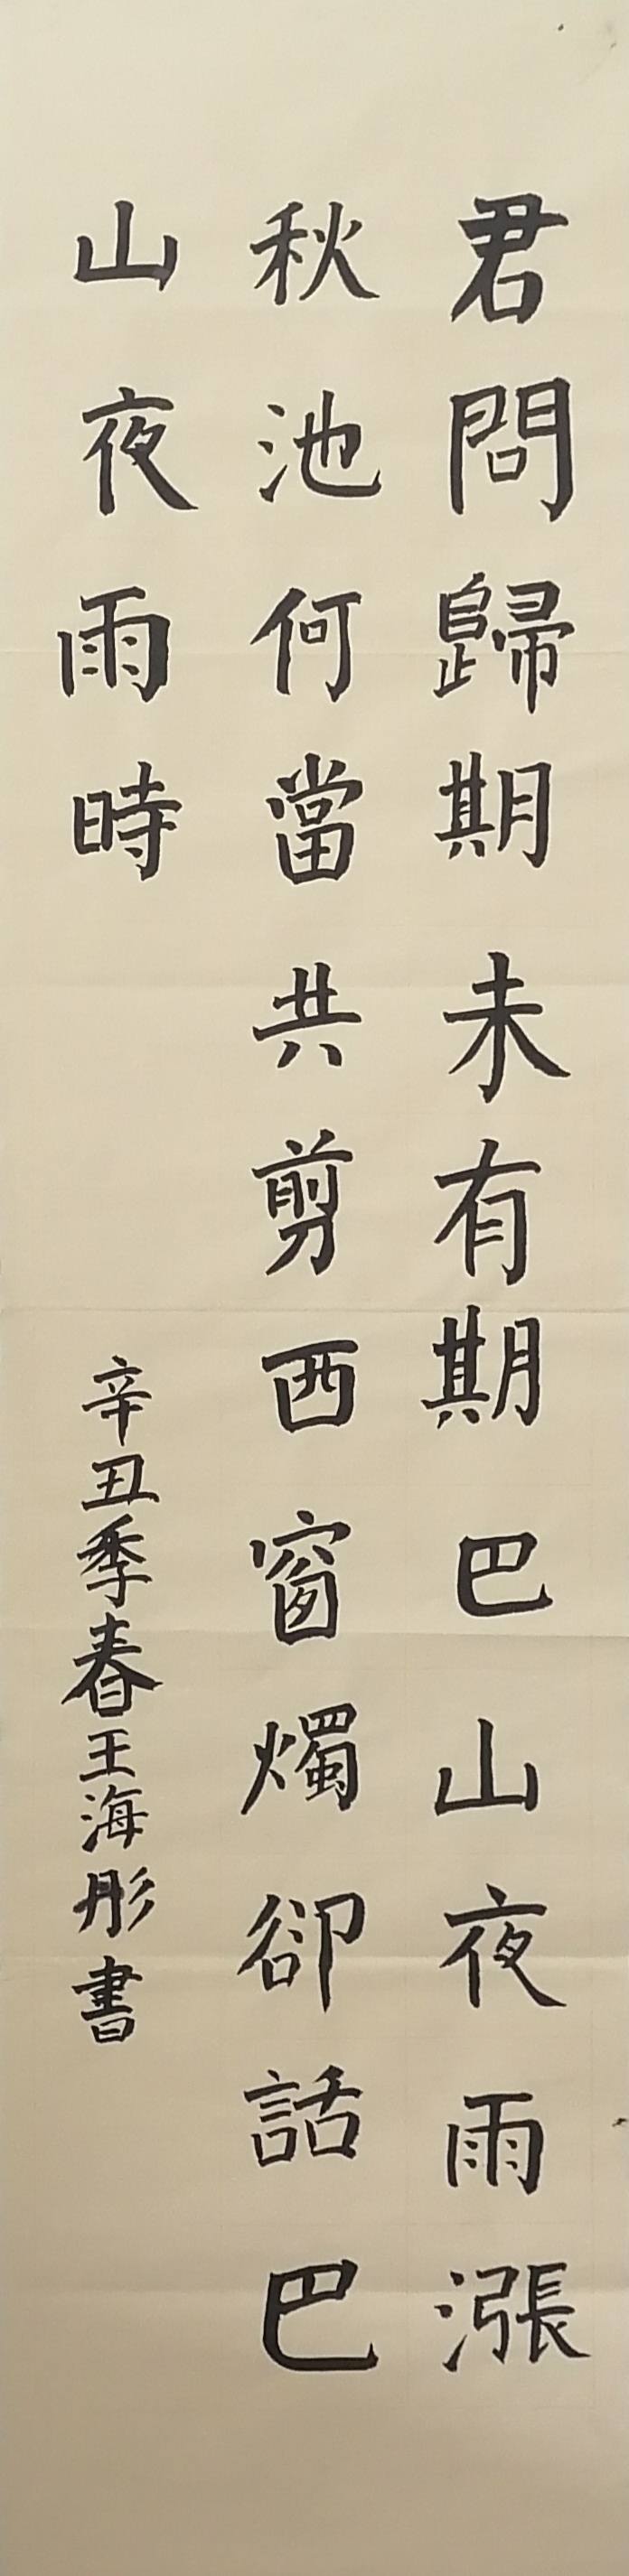 君問歸期未有期巴山夜雨漲
秋池何當共剪西窗燭卻話巴
山夜雨時
辛丑季春王海彤書